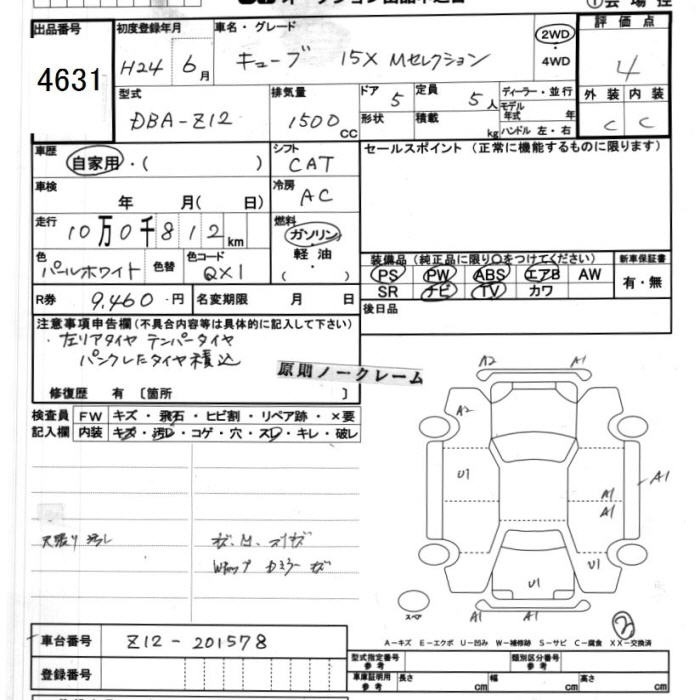 出品番号 4631
初度登録年月 H24 6月
車名・グレード キューブ 15X Mセレクション
2WD ・ 4WD
評価点 4
外装 内装
C C
型式 DBA-Z12
排気量 1500cc
ドア 5
定員 5人
形状
積載 kg
ディーラー・並行
モデル年式 年
ハンドル 左・右
車歴 自家用・( )
シフト CAT
セールスポイント (正常に機能するものに限ります)
車検 年 月( 日)
冷房 AC
走行 10万0千812km
燃料 ガソリン・軽油・
色 パールホワイト
色替
色コード QX1
装備品 (純正品に限り○をつけてください)
新車保証書
PS PW ABS エアB AW
有・無
SR ナビ TV カワ
R券 9,460円
名変期限 月 日
後日品
注意事項申告欄 (不具合内容等は具体的に記入して下さい)
・左リアタイヤ テンパータイヤ
パンクしたタイヤ積込
原則ノークレーム
修復歴 有〔箇所 〕
検査員記入欄
FW キズ・飛石・ヒビ割・リペア跡・×要
内装 キズ・汚レ・コゲ・穴・スレ・キレ・破レ
A2 A1
A2
U1
A1
A1
A1
U1
U1
A1 A1
天張り汚レ
Wカップ カミラー キズ
スペア
A-キズ E-エクボ U-凹み W-補修跡 S-サビ C-腐食 XX-交換済
車台番号 Z12-201578
登録番号
型式指定番号 参考
類別区分番号 参考
車庫証明用 参考 長さ cm 幅 cm 高さ cm